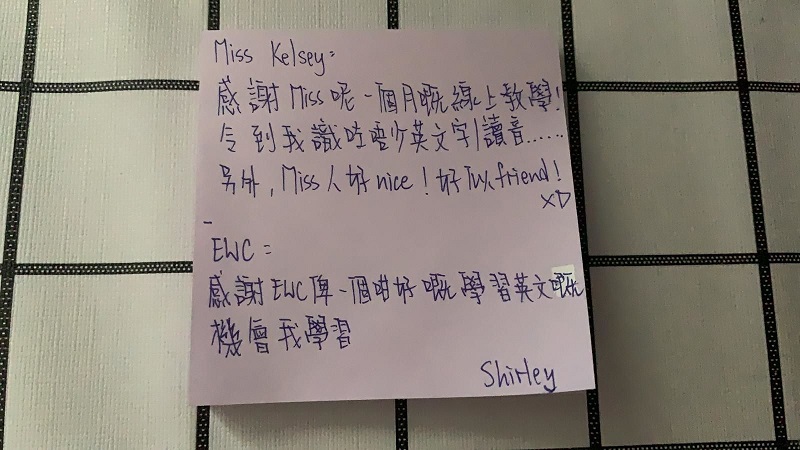 Miss Kelsey:
感謝 Miss 呢一個月嘅線上教學!
令到我識咗唔少英文字/讀音......
另外, Miss 人好 nice! 好 friend!
XD
-
EWC:
感謝 EWC 俾一個咁好嘅學習英文嘅
機會我學習
Shirley